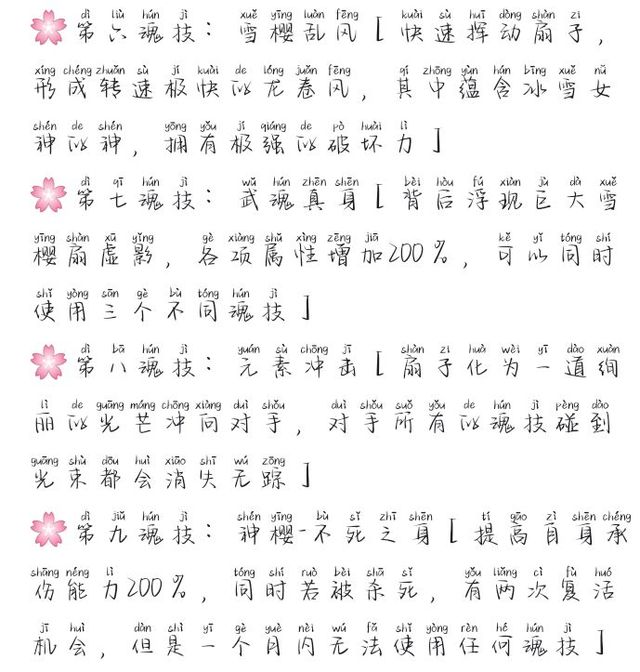 dì liù hún jì xuě yīng luàn fēng kuài sù huī dòng shàn zi
第六魂技：雪樱乱风[快速挥动扇子，
xíng chéng zhuǎn sù jí kuài de lóng juǎn fēng qí zhōng yùn hán bīng xuě nǚ
形成转速极快的龙卷风，其中蕴含冰雪女
shén de shén yōng yǒu jí qiáng de pò huài lì
神的神，拥有极强的破坏力]
dì qī hún jì wǔ hún zhēn shēn bèi hòu fú xiàn jù dà xuě
第七魂技：武魂真身[背后浮现巨大雪
yīng shàn xū yǐng gè xiàng shǔ xìng zēng jiā kě yǐ tóng shí
樱扇虚影，各项属性增加200%，可以同时
shǐ yòng sān gè bù tóng hún jì
使用三个不同魂技]
dì bā hún jì yuán sù chōng jī shàn zi huà wéi yī dào xuàn
第八魂技：元素冲击[扇子化为一道绚
lì de guāng máng chōng xiàng duì shǒu duì shǒu suǒ yǒu de hún jì pèng dào
丽的光芒冲向对手，对手所有的魂技碰到
guāng shù dōu huì xiāo shī wú zōng
光束都会消失无踪]
dì jiǔ hún jì shén yīng bù sǐ zhī shēn tí gāo zì shēn chéng
第九魂技：神樱-不死之身[提高自身承
shāng néng lì tóng shí ruò bèi shā sǐ yǒu liǎng cì fù huó
伤能力200%，同时若被杀死，有两次复活
jī huì dàn shì yī gè yuè nèi wú fǎ shǐ yòng rèn hé hún jì
机会，但是一个月内无法使用任何魂技]